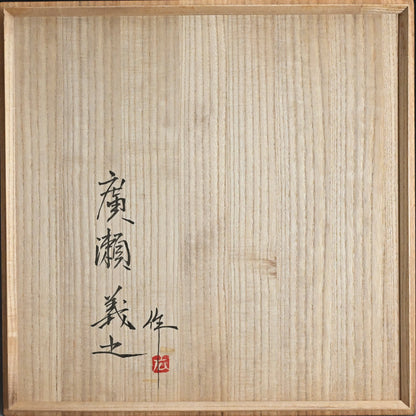 廣瀬義之
作